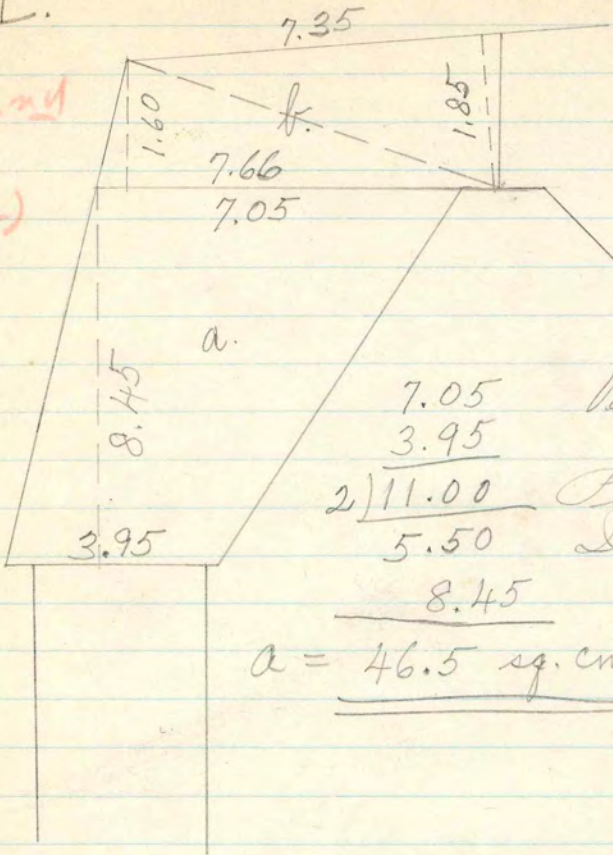 L.
7.35
1.60
b.
1.85
7.66
7.05
a.
8.45
3.95
7.05
3.95
2)11.00
5.50
8.45
a = 46.5 sq. cm